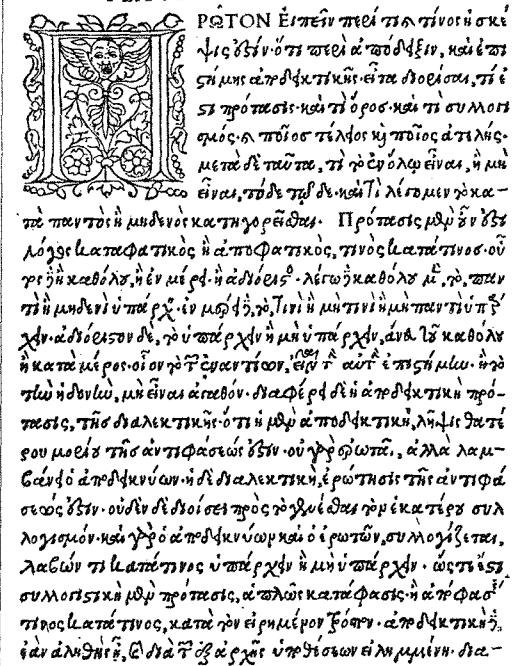 ΡΩ͂ΤΟΝ Εἰπεῖν περὶ τί καὶ τίνος ἡ σκέ
ψις ὀξίν· ὅτι περὶ ἀπόδειξιν, καὶ ἐπι
στήμης ἀποδεικτικῆς· εἶτα διορίσαι, τί ἐ
στι πρότασις· καὶ τί ὅρος· καὶ τί συλλογι
σμός· καὶ ποῖος τέλειος καὶ ποῖος ἀτελής·
μετὰ δὲ ταῦτα, τί τὸ ἐν ὅλῳ εἶναι, ἢ μὴ
εἶναι, τόδε τῷδε· καὶ τί λέγομεν τὸ κα-
τὰ παντὸς ἢ μηδενὸς κατηγορεῖσθαι· Πρότασις μὲν οὖν ἐστι
λόγος καταφατικὸς ἢ ἀποφατικὸς, τινὸς κατά τινος· οὗ
τος ἢ καθόλου, ἢ ἐν μέρει ἢ ἀδιόριστος· λέγω καθόλου μὲν, τὸ, παν
τὶ ἢ μηδενὶ ὑπάρχειν· ἐν μέρει, τὸ, τινὶ ἢ μὴ τινὶ ἢ μὴ παντὶ ὑπάρ
χειν· ἀδιόριστον δὲ, τὸ ὑπάρχειν ἢ μὴ ὑπάρχειν, ἄνευ τοῦ καθόλου
ἢ κατὰ μέρος· οἷον τὸ τῶν ἐναντίων, εἶναι τὴν αὐτὴν ἐπιστήμην· ἢ τὸ
τὴν ἡδονὴν, μὴ εἶναι ἀγαθόν· διαφέρει δὲ ἡ ἀποδεικτικὴ πρό-
τασις, τῆς διαλεκτικῆς· ὅτι ἡ μὲν ἀποδεικτικὴ, λῆψις θατέ
ρου μορίου τῆς ἀντιφάσεώς ἐστιν· οὐ γὰρ ἐρωτᾷ, ἀλλὰ λαμ-
βάνει ὁ ἀποδεικνύων· ἡ δὲ διαλεκτικὴ, ἐρώτησις τῆς ἀντιφά
σεώς ἐστιν· οὐδὲν δὲ διοίσει πρὸς τὸ γενέσθαι τὸν ἑκατέρου συλ
λογισμόν· καὶ γὰρ ὁ ἀποδεικνύων καὶ ὁ ἐρωτῶν, συλλογίζεται,
λαβών τι κατά τινος ὑπάρχειν ἢ μὴ ὑπάρχειν· ὥστε ἔσται
συλλογιστικὴ μὲν πρότασις, ἁπλῶς κατάφασις· ἢ ἀπόφασις
τινος κατά τινος, κατὰ τὸν εἰρημένον τρόπον· ἀποδεικτικὴ δὲ,
ἐὰν ἀληθὴς ᾖ, καὶ διὰ τῶν ἐξ ἀρχῆς ὑποθέσεων εἰλημμένη· δια-